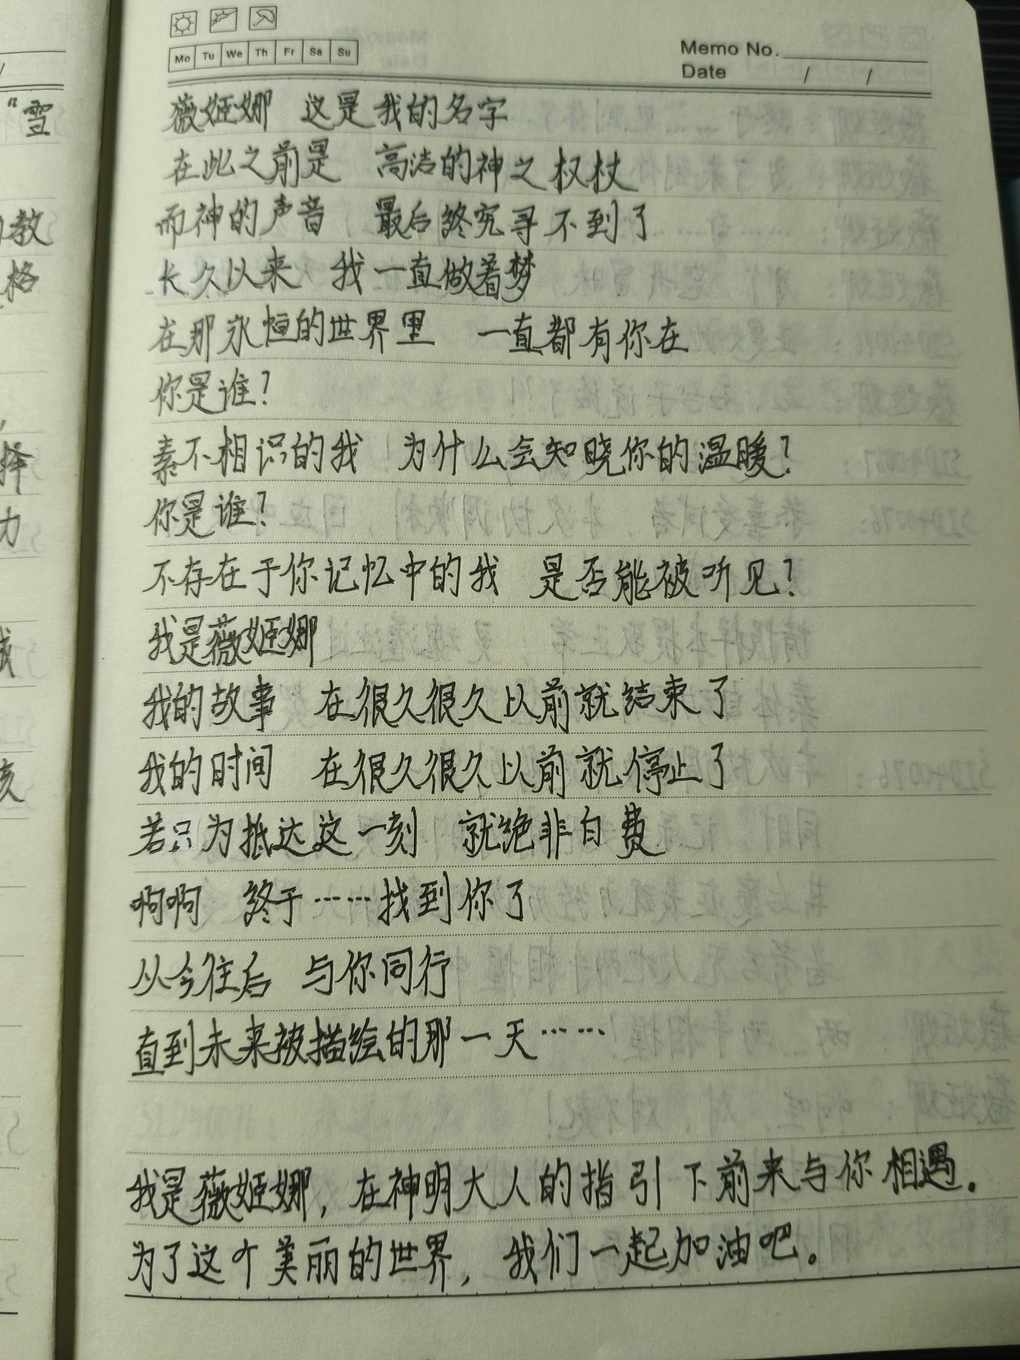 Mo Tu We Th Fr Sa Su
Memo No.
Date / /
薇姬娜 这是我的名字
在此之前是 高洁的神之权杖
而神的声音 最后终究寻不到了
长久以来 我一直做着梦
在那永恒的世界里 一直都有你在
你是谁?
素不相识的我 为什么会知晓你的温暖?
你是谁?
不存在于你记忆中的我 是否能被听见?
我是薇姬娜
我的故事 在很久很久以前就结束了
我的时间 在很久很久以前就停止了
若只为抵达这一刻 就绝非白费
啊啊 终于……找到你了
从今往后 与你同行
直到未来被描绘的那一天……
我是薇姬娜，在神明大人的指引下前来与你相遇。
为了这个美丽的世界，我们一起加油吧。
"雪
教
格
择
力